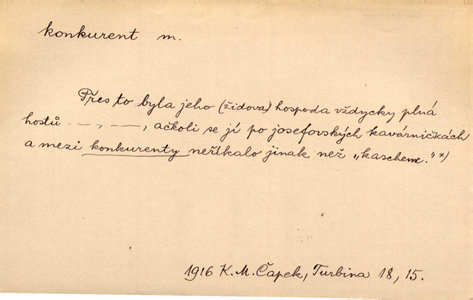 konkurent m.
Přes to byla jeho (židova) hospoda vždycky plná
hostů – –, – –, ačkoli se jí po josefovských kavárničkách
a mezi konkurenty neříkalo jinak než „kascheme."*)
1916 K. M. Čapek, Turbina 18, 15.